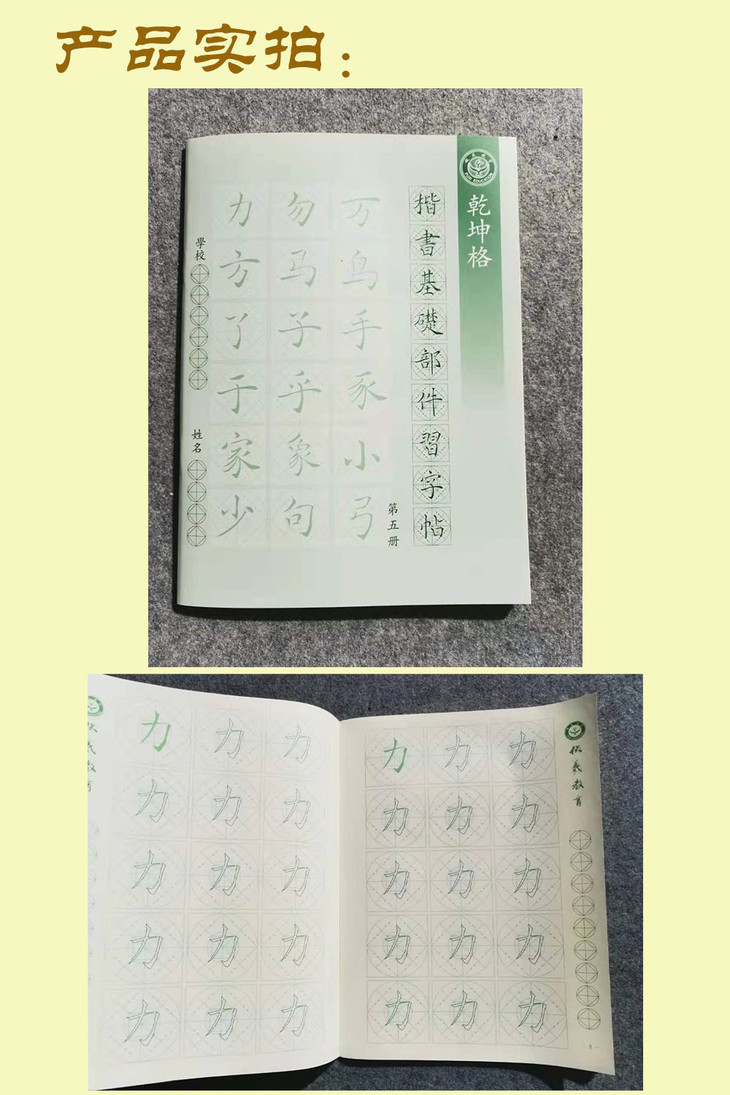 产品实拍：
乾坤格
楷書基礎部件習字帖
第五册
力 勿 万
方 马 鸟
了 子 手
于 乎 豕
家 象 小
少 句 弓
學校
姓名
力 力 力
力 力 力
力 力 力
力 力 力
力 力 力
力 力 力
力 力 力
力 力 力
力 力 力
力 力 力
伏羲教育